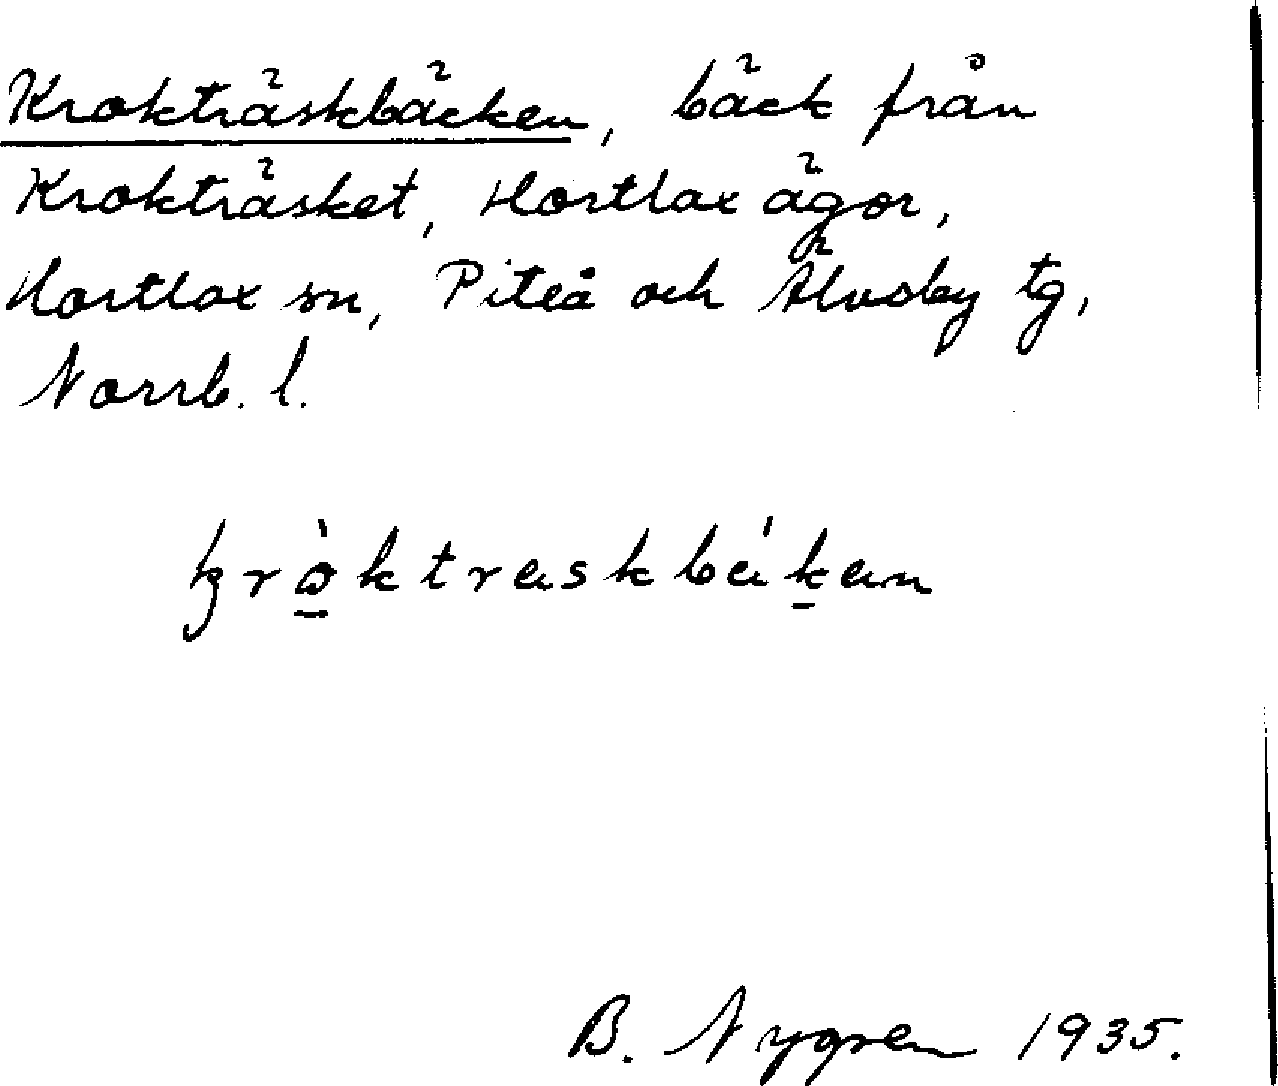 Krokträskbäcken, bäck från
Krokträsket, Hortlax ägor,
Hortlax sn, Piteå och Älvsby tg,
Norrb. l.
B. Nygren 1935.